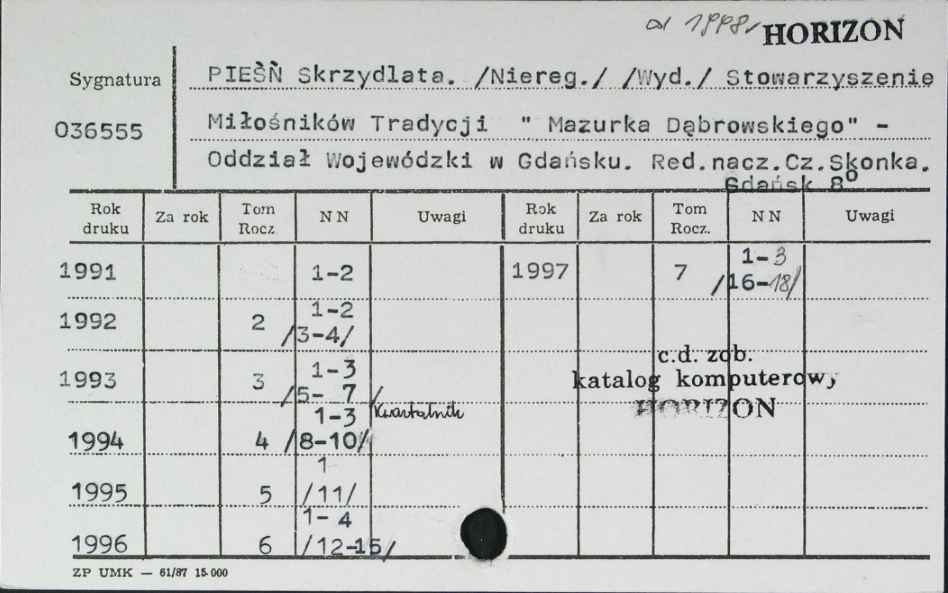 od 1998r HORIZON
Sygnatura
036555
PIEŚŃ Skrzydlata. /Niereg./ /Wyd./ Stowarzyszenie
Miłośników Tradycji " Mazurka Dąbrowskiego" -
Oddział Wojewódzki w Gdańsku. Red.nacz.Cz.Skonka.
Gdańsk 8º
Rok druku Za rok Tom Rocz. N N Uwagi Rok druku Za rok Tom Rocz. N N Uwagi
1991 1-2 1997 7 1-3 /16-18/
1992 2 1-2 /3-4/
1993 3 1-3 /5- 7 /
1994 4 1-3 /8-10/ Kwartalnik
1995 5 1 /11/
1996 6 1- 4 /12-15/
c.d. zob.
katalog komputerowy
HORIZON
ZP UMK — 61/87 15.000